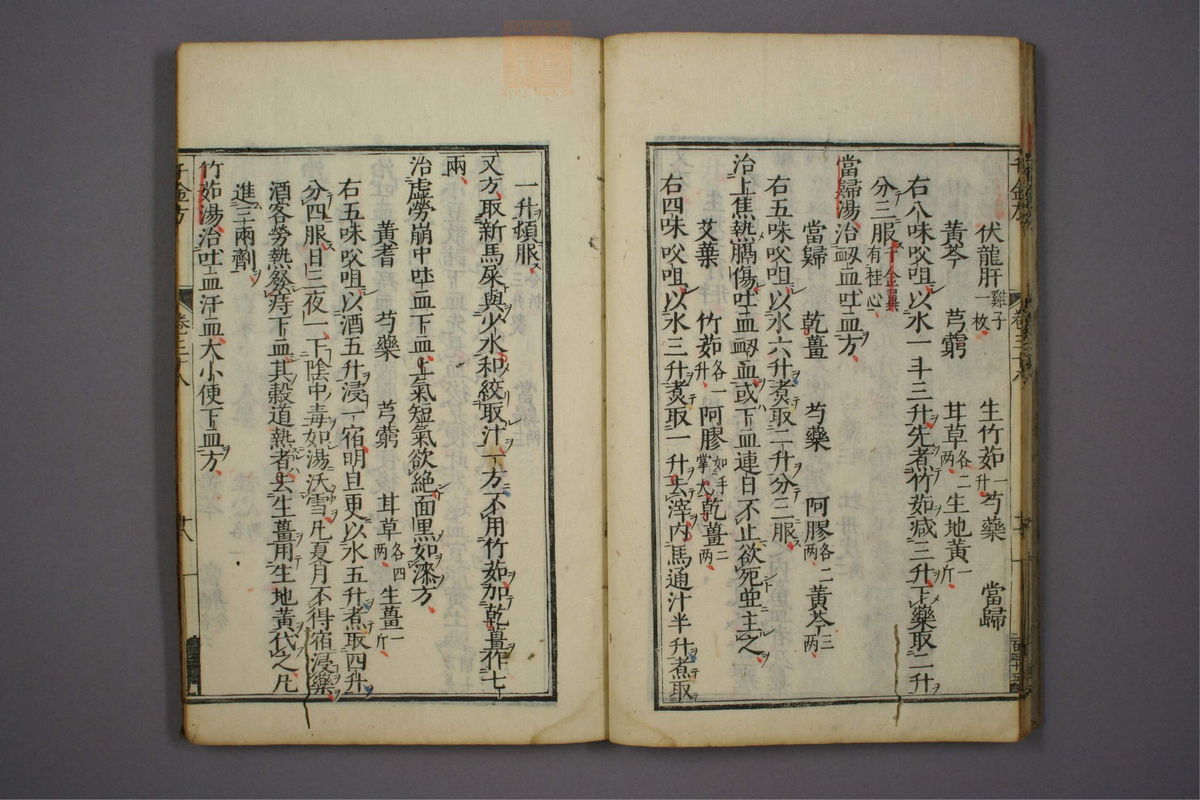 伏龍肝雞子一枚 生竹茹一升 芍藥 當歸
黃芩 芎藭 甘草各二兩 生地黃一斤
右八味㕮咀以水一斗三升先煮竹茹減三升下藥取二升
分三服千金翼有桂心
當歸湯治衂血吐血方
當歸 乾薑 芍藥 阿膠各二兩 黃芩三兩
右五味㕮咀以水六升煮取二升分三服
治上焦熱膈傷吐血衂血或下血連日不止欲死並主之
艾葉 竹茹各一升 阿膠如手掌大 乾薑二兩
右四味㕮咀以水三升煮取一升去滓內馬通汁半升煮取
千金方 卷三十八
一升頓服
又方取新馬屎與少水和絞取汁一方不用竹茹加乾薑作七
兩
治虛勞崩中吐血下血上氣短氣欲絕面黑如漆方
黃耆 芍藥 芎藭 甘草各四兩 生薑一斤
右五味㕮咀以酒五升浸一宿明旦更以水五升煮取四升
分四服日三夜一下陰中毒如湯沃雪凡夏月不得宿浸藥
酒客勞熱發痔下血其穀道熱者去生薑用生地黃代之凡
進三兩劑
竹茹湯治吐血汗血大小便下血方
千金方 卷三十八